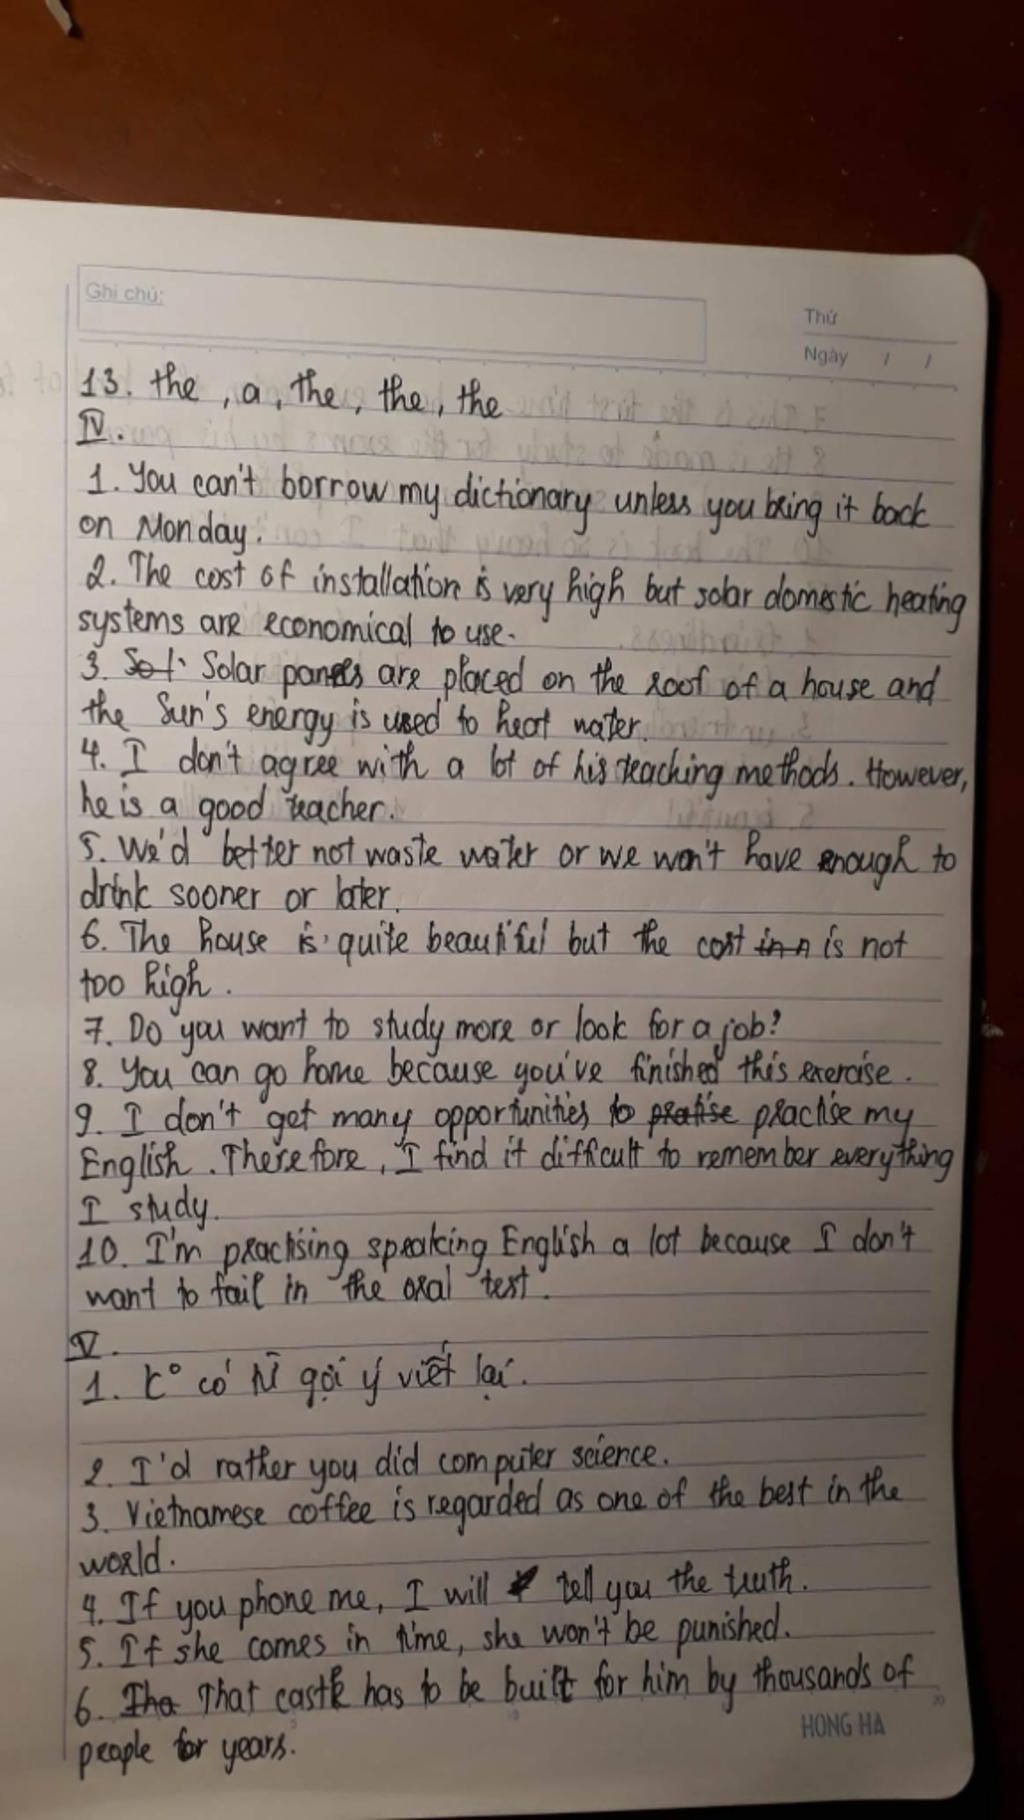 Ghi chú:
Thứ
Ngày / /
13. the, a, the, the, the
IV.
1. You can't borrow my dictionary unless you bring it back
on Monday.
2. The cost of installation is very high but solar domestic heating
systems are economical to use.
3. Sol Solar panels are placed on the roof of a house and
the Sun's energy is used to heat water.
4. I don't agree with a lot of his teaching methods. However,
he is a good teacher.
5. We'd better not waste water or we won't have enough to
drink sooner or later.
6. The house is quite beautiful but the cost in n is not
too high.
7. Do you want to study more or look for a job?
8. You can go home because you've finished this exercise.
9. I don't get many opportunities to pratise practise my
English. Therefore, I find it difficult to remember everything
I study.
10. I'm practising speaking English a lot because I don't
want to fail in the oral test.
V.
1. k° có gợi ý viết lại.
2. I'd rather you did computer science.
3. Vietnamese coffee is regarded as one of the best in the
world.
4. If you phone me, I will tell you the truth.
5. If she comes in time, she won't be punished.
6. Tha That castle has to be built for him by thousands of
people for years.
HONG HA